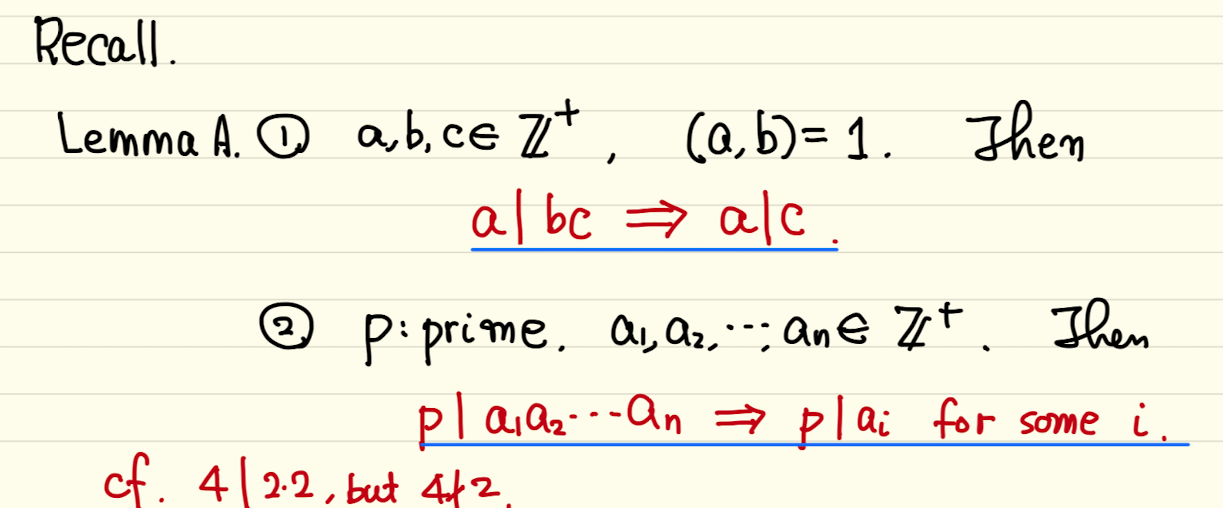 Recall.
Lemma A. ① a,b,c∈ ℤ⁺, (a,b)=1. Then
a|bc ⇒ a|c.
② p:prime. a₁,a₂,⋯,aₙ∈ ℤ⁺. Then
p|a₁a₂⋯aₙ ⇒ p|aᵢ for some i.
cf. 4|2·2, but 4∤2.